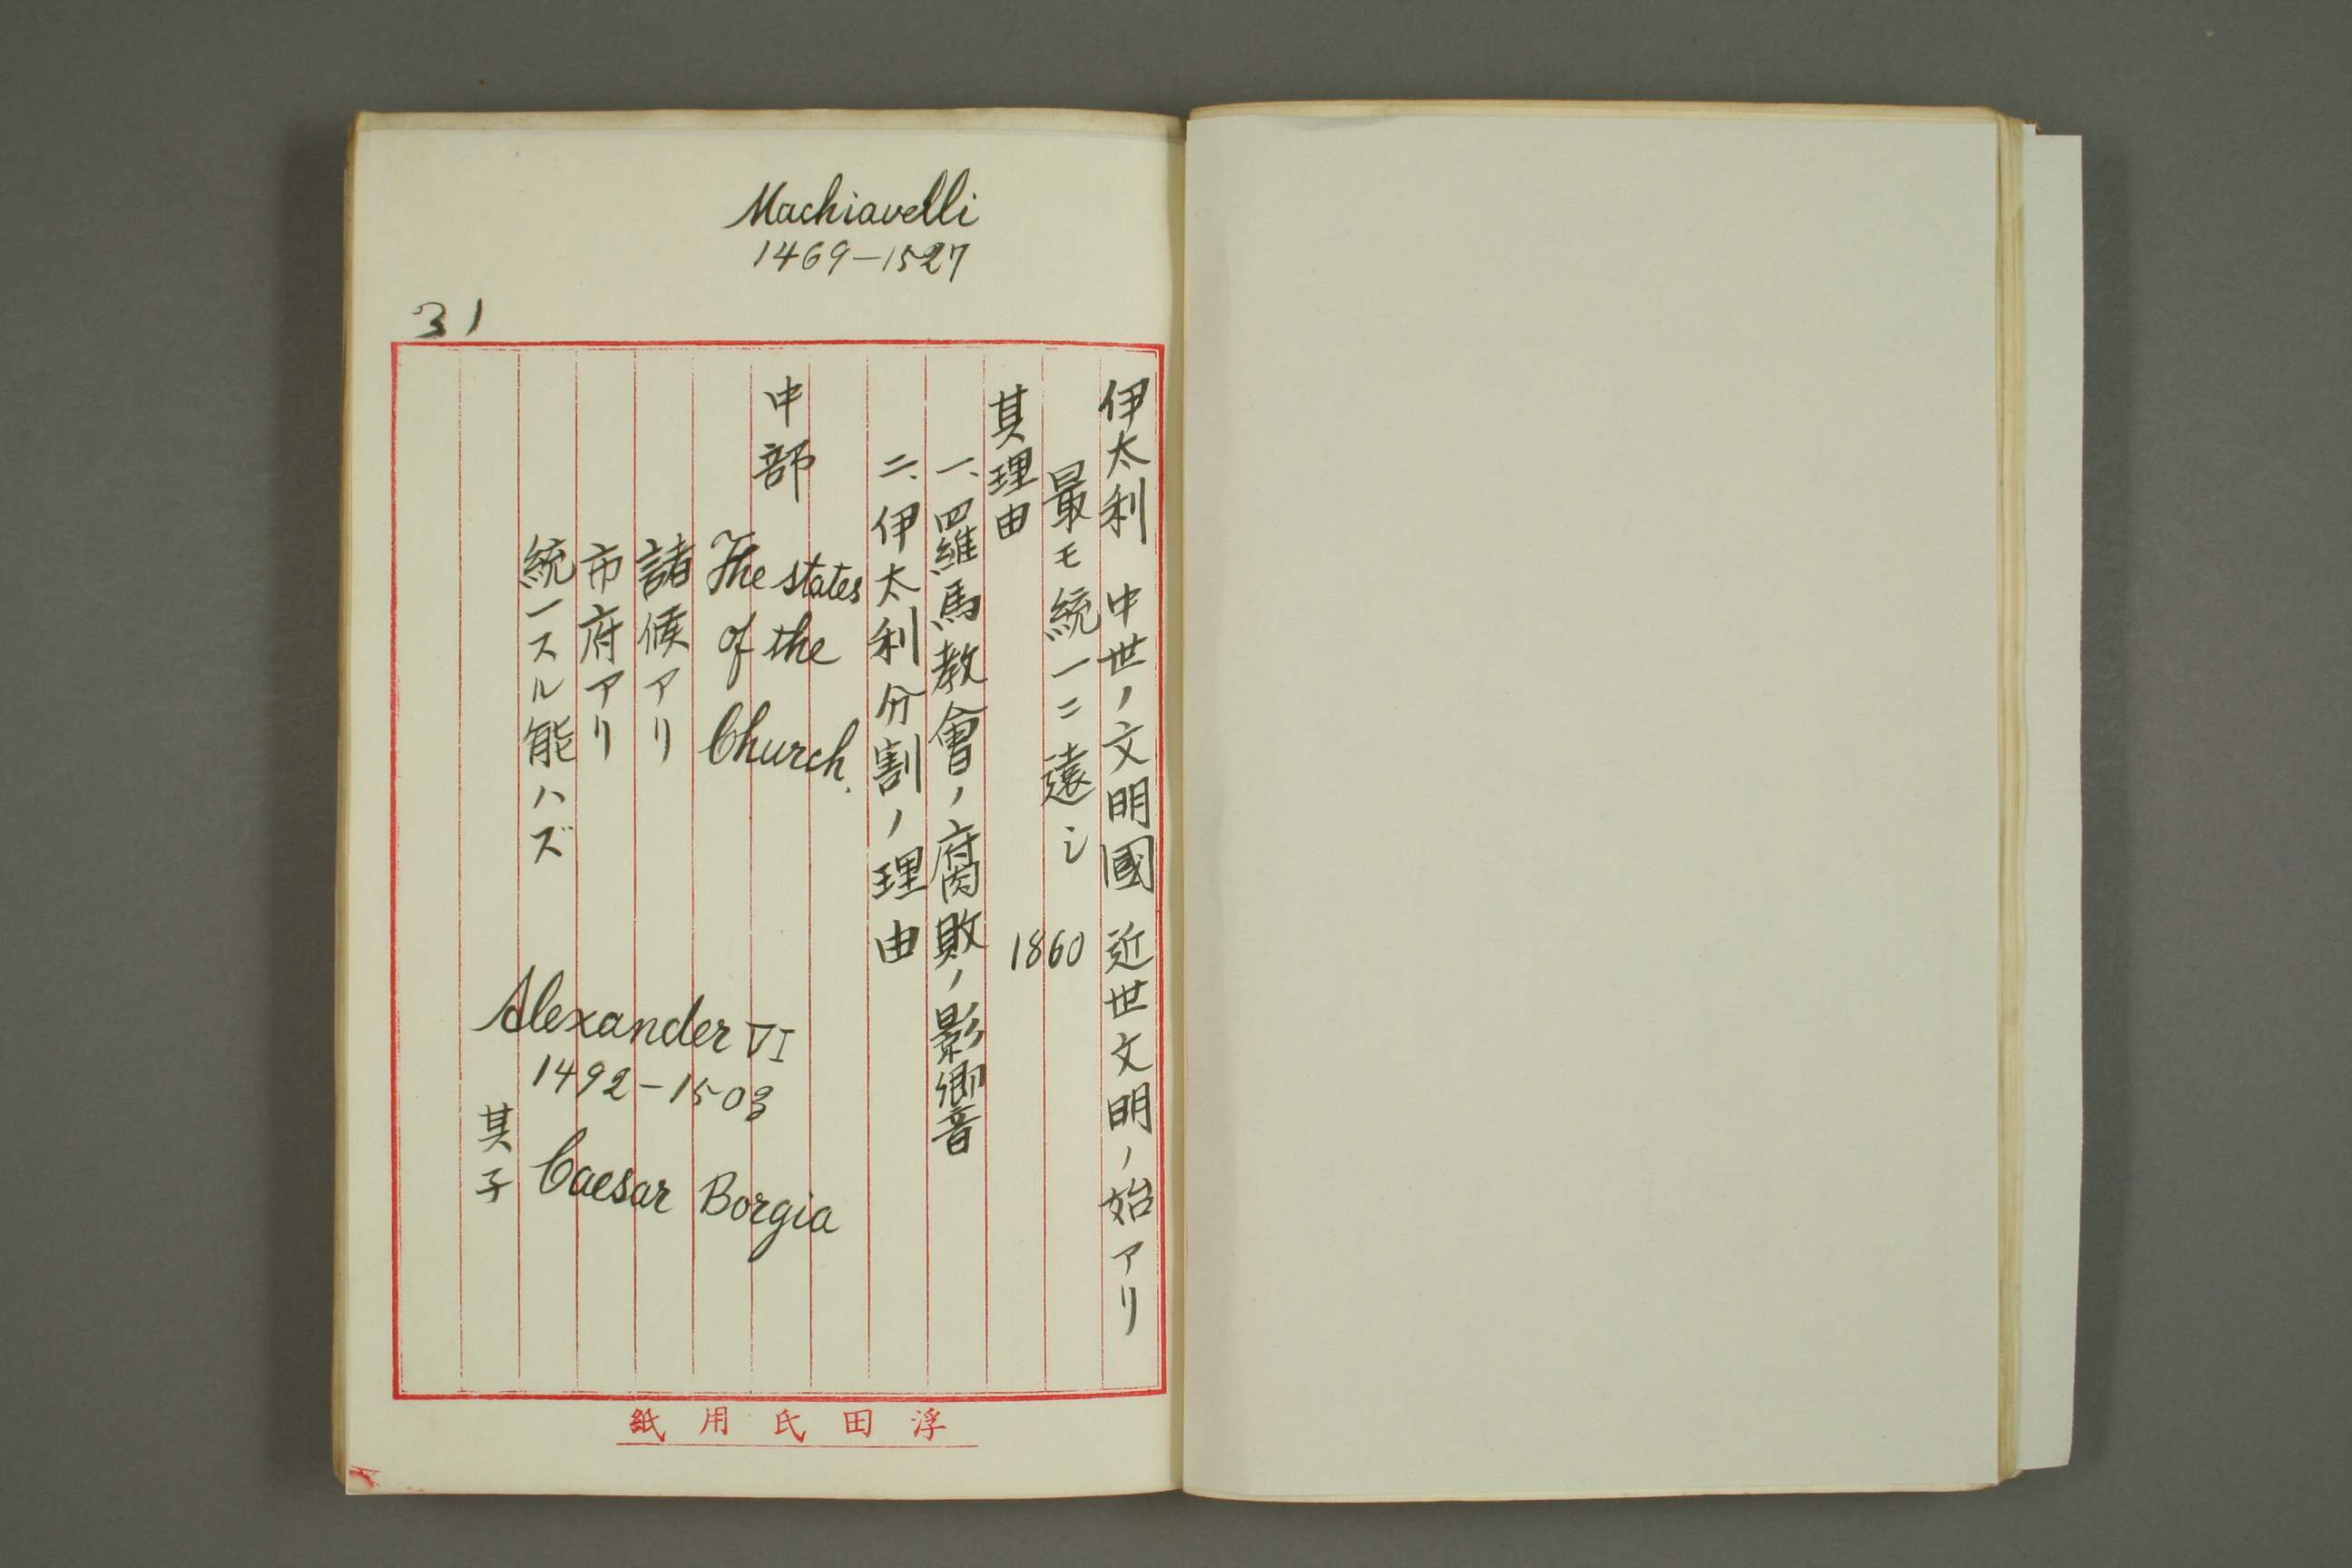 Machiavelli
1469-1527
31
伊太利 中世ノ文明國 近世文明ノ始アリ
最モ統一ニ遠シ 1860
其理由
一、羅馬教會ノ腐敗ノ影響
二、伊太利分割ノ理由
中部
The states
of the
Church.
諸候アリ
市府アリ
統一スル能ハズ
Alexander VI
1492-1503
其子 Caesar Borgia
浮田氏用紙